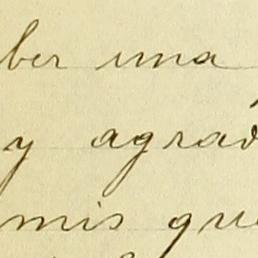 ber una
y agrad
mis que